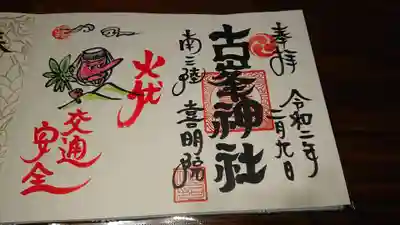 奉拝
令和二年二月九日
古峯神社
南三陸 喜明院
火伏
交通
安全